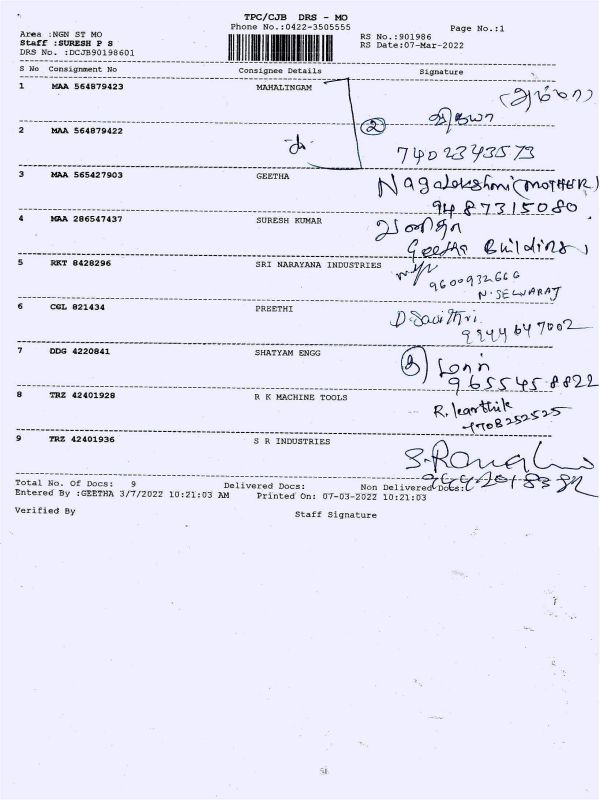 TPC/CJB DRS - MO
Phone No.:0422-3505555
Page No.:1
Area :NGN ST MO
RS No.:901986
Staff :SURESH P S
RS Date:07-Mar-2022
DRS No. :DCJB90198601
S No Consignment No Consignee Details Signature
1 MAA 564879423 MAHALINGAM
(அம்மா)
2 MAA 564879422
②
7402343573
3 MAA 565427903 GEETHA Nagalekshmi (MOTHER)
9487315080
4 MAA 286547437 SURESH KUMAR
Geetha Building
5 RKT 8428296 SRI NARAYANA INDUSTRIES
9600932666
N. SELVARAJ
6 CGL 821434 PREETHI D. Savithri
9944647002
7 DDG 4220841 SHATYAM ENGG
9655458822
8 TRZ 42401928 R K MACHINE TOOLS R. karthik
9708252525
9 TRZ 42401936 S R INDUSTRIES
Total No. Of Docs: 9 Delivered Docs: Non Delivered Docs:
Entered By :GEETHA 3/7/2022 10:21:03 AM Printed On: 07-03-2022 10:21:03
Verified By Staff Signature